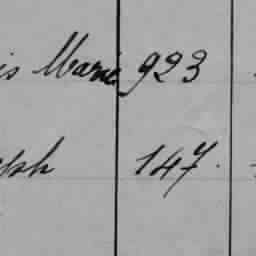 is Marie 923
eph 147.